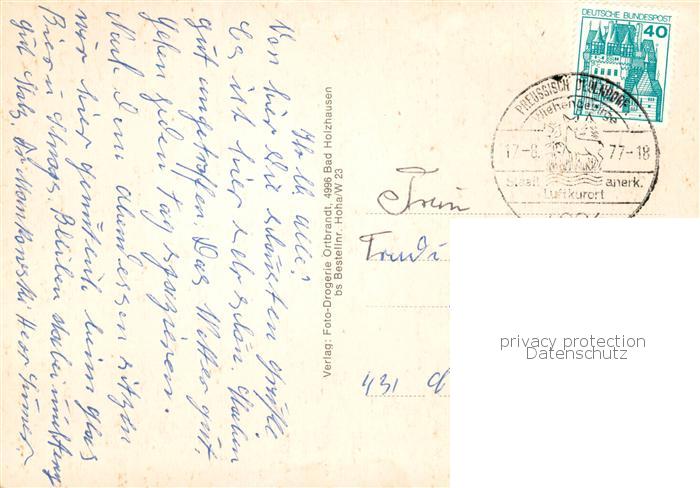 Hallo alle!
Von hier die schönsten Grüße
Es ist hier sehr schön. Haben
gut angetroffen. Das Wetter gut,
gehen jeden Tag spazieren.
Nach dem Abendessen sitzen
wir hier gemütlich beim Glas
Bier u. Bleiben
gut
Verlag: Foto-Drogerie Ortbrandt, 4996 Bad Holzhausen
bs Bestellnr. Hoha/W 23
DEUTSCHE BUNDESPOST
40
PREUSSISCH OLDENDORF
Wiehengebirge
77-18
Staatl. anerk.
Luftkurort
Frau
Trudi
431
privacy protection
Datenschutz